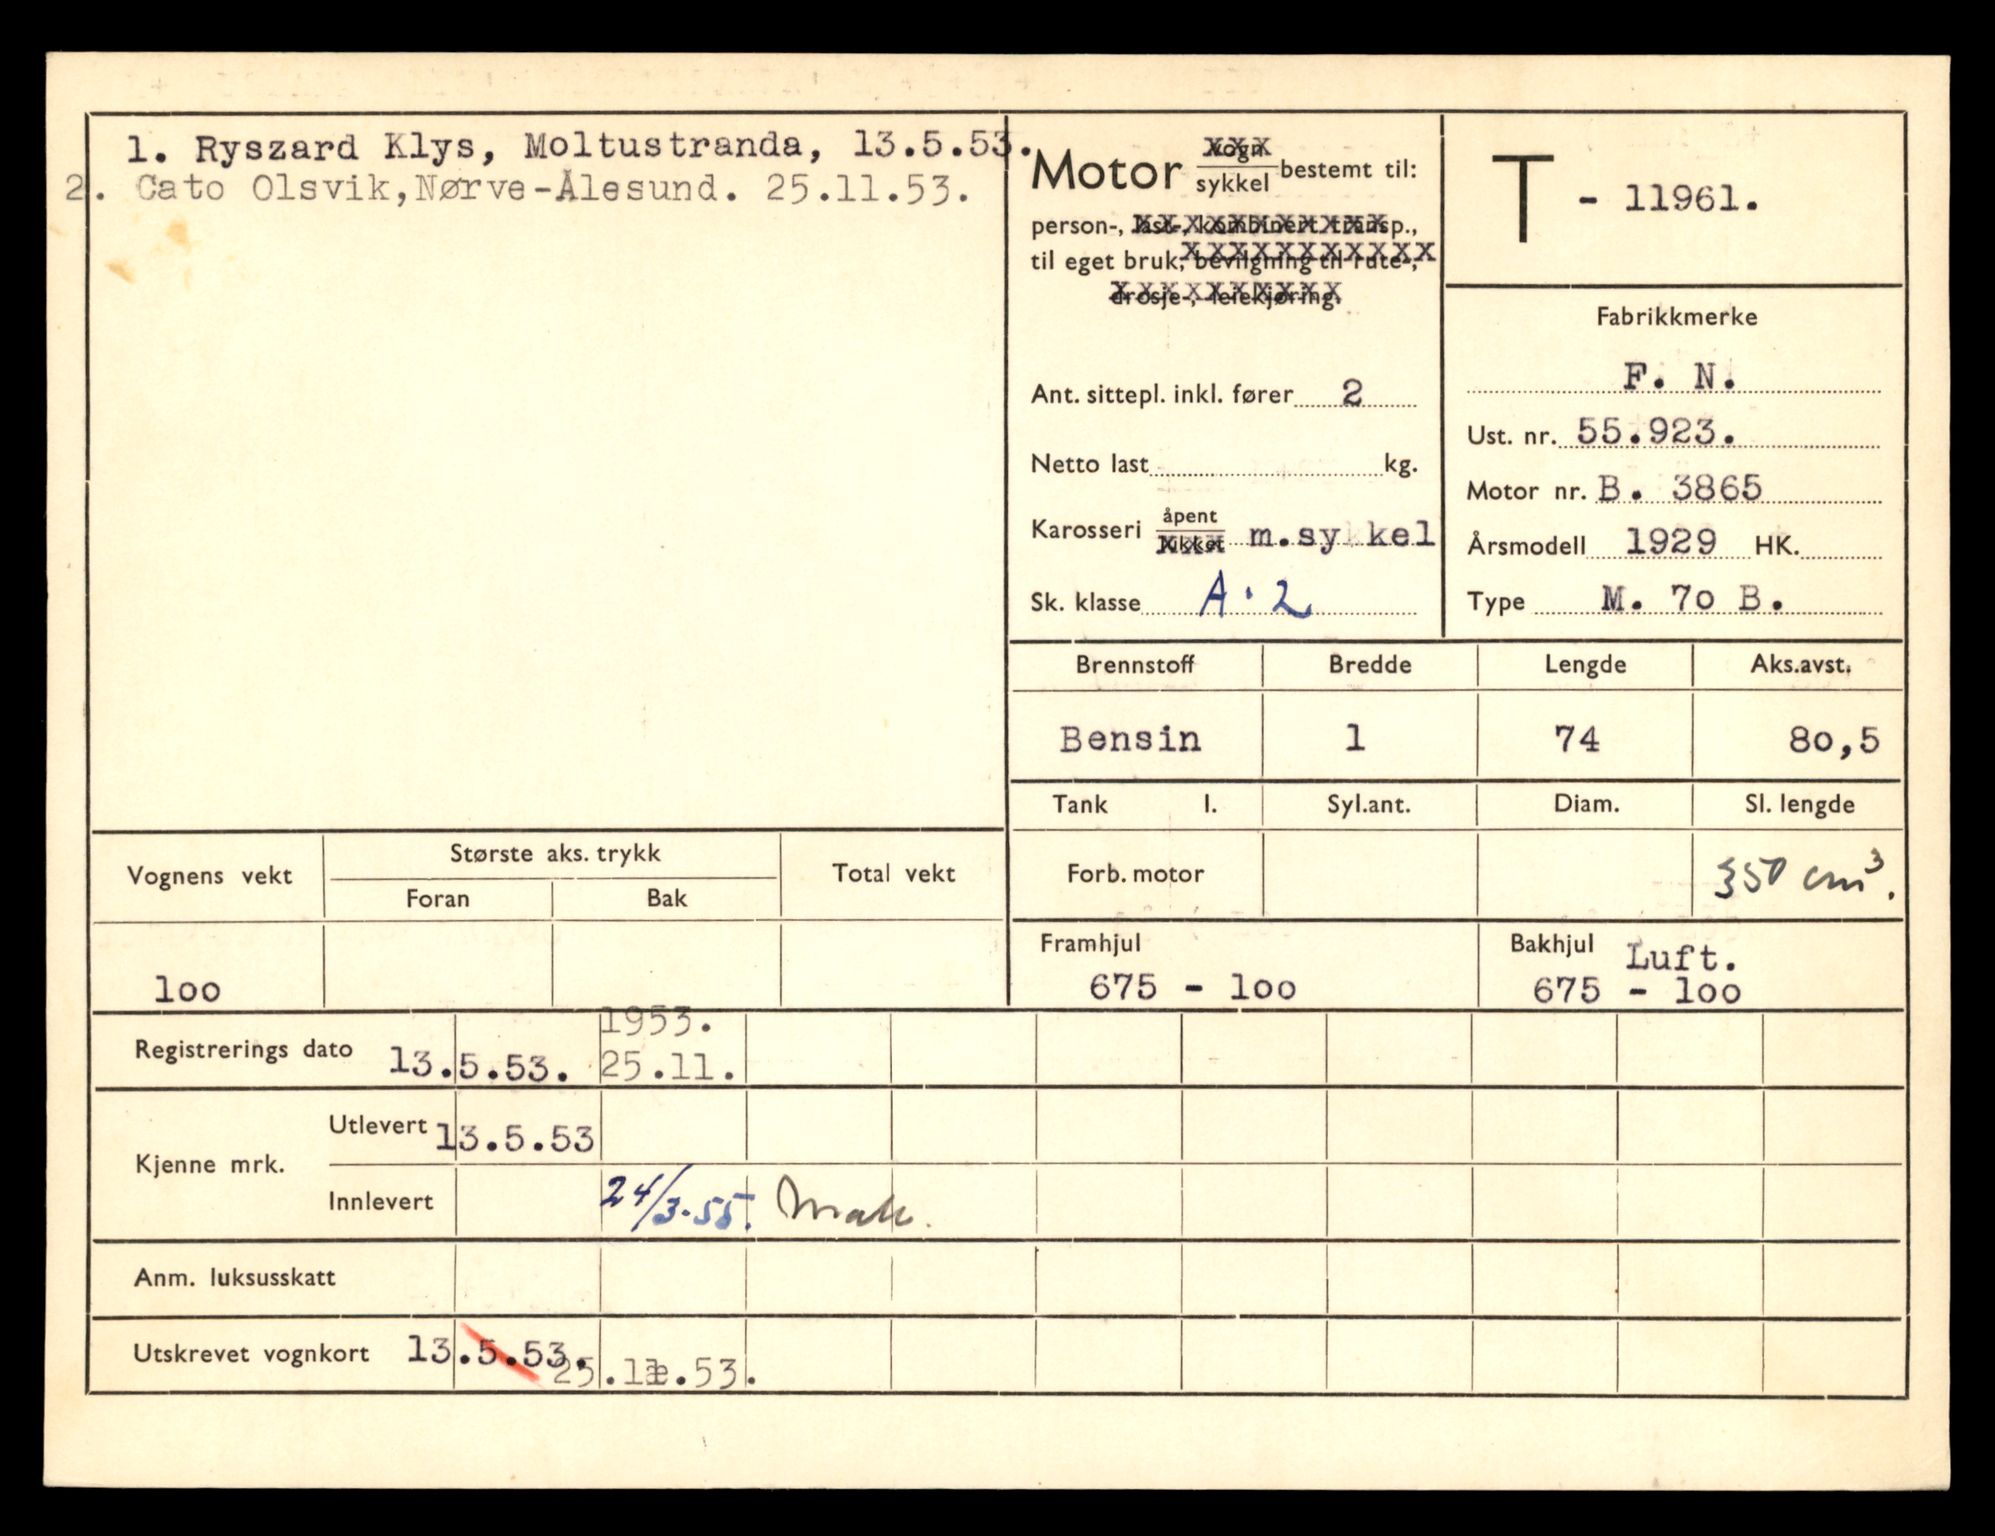 1. Ryszard Klys, Moltustranda, 13.5.53.
2. Cato Olsvik,Nørve-Ålesund. 25.11.53.
Motor vogn/sykkel bestemt til:
person-, last-, kombinert transp.,
til eget bruk, bevilgning til rute-,
drosje-, leiekjøring.
Ant. sittepl. inkl. fører 2
Netto last kg.
Karosseri åpent/lukket m.sykkel
Sk. klasse A.2
T - 11961.
Fabrikkmerke
F. N.
Ust. nr. 55.923.
Motor nr. B. 3865
Årsmodell 1929 HK.
Type M. 7o B.
Brennstoff Bredde Lengde Aks.avst.
Bensin 1 74 8o,5
Tank l. Syl.ant. Diam. Sl. lengde
Forb. motor 350 cm³.
Framhjul
675 - loo
Bakhjul Luft.
675 - loo
Vognens vekt Største aks. trykk Total vekt
Foran Bak
loo
1953.
Registrerings dato 13.5.53. 25.11.
Kjenne mrk. Utlevert 13.5.53
Innlevert 24/3-55.
Anm. luksusskatt
Utskrevet vognkort 13.5.53. 25.11.53.